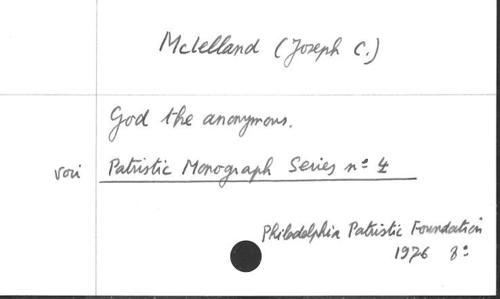 McLelland (Joseph C.)
God the anonymous.
voir Patristic Monograph Series nº 4
Philadelphia Patristic Foundation
1976 8º